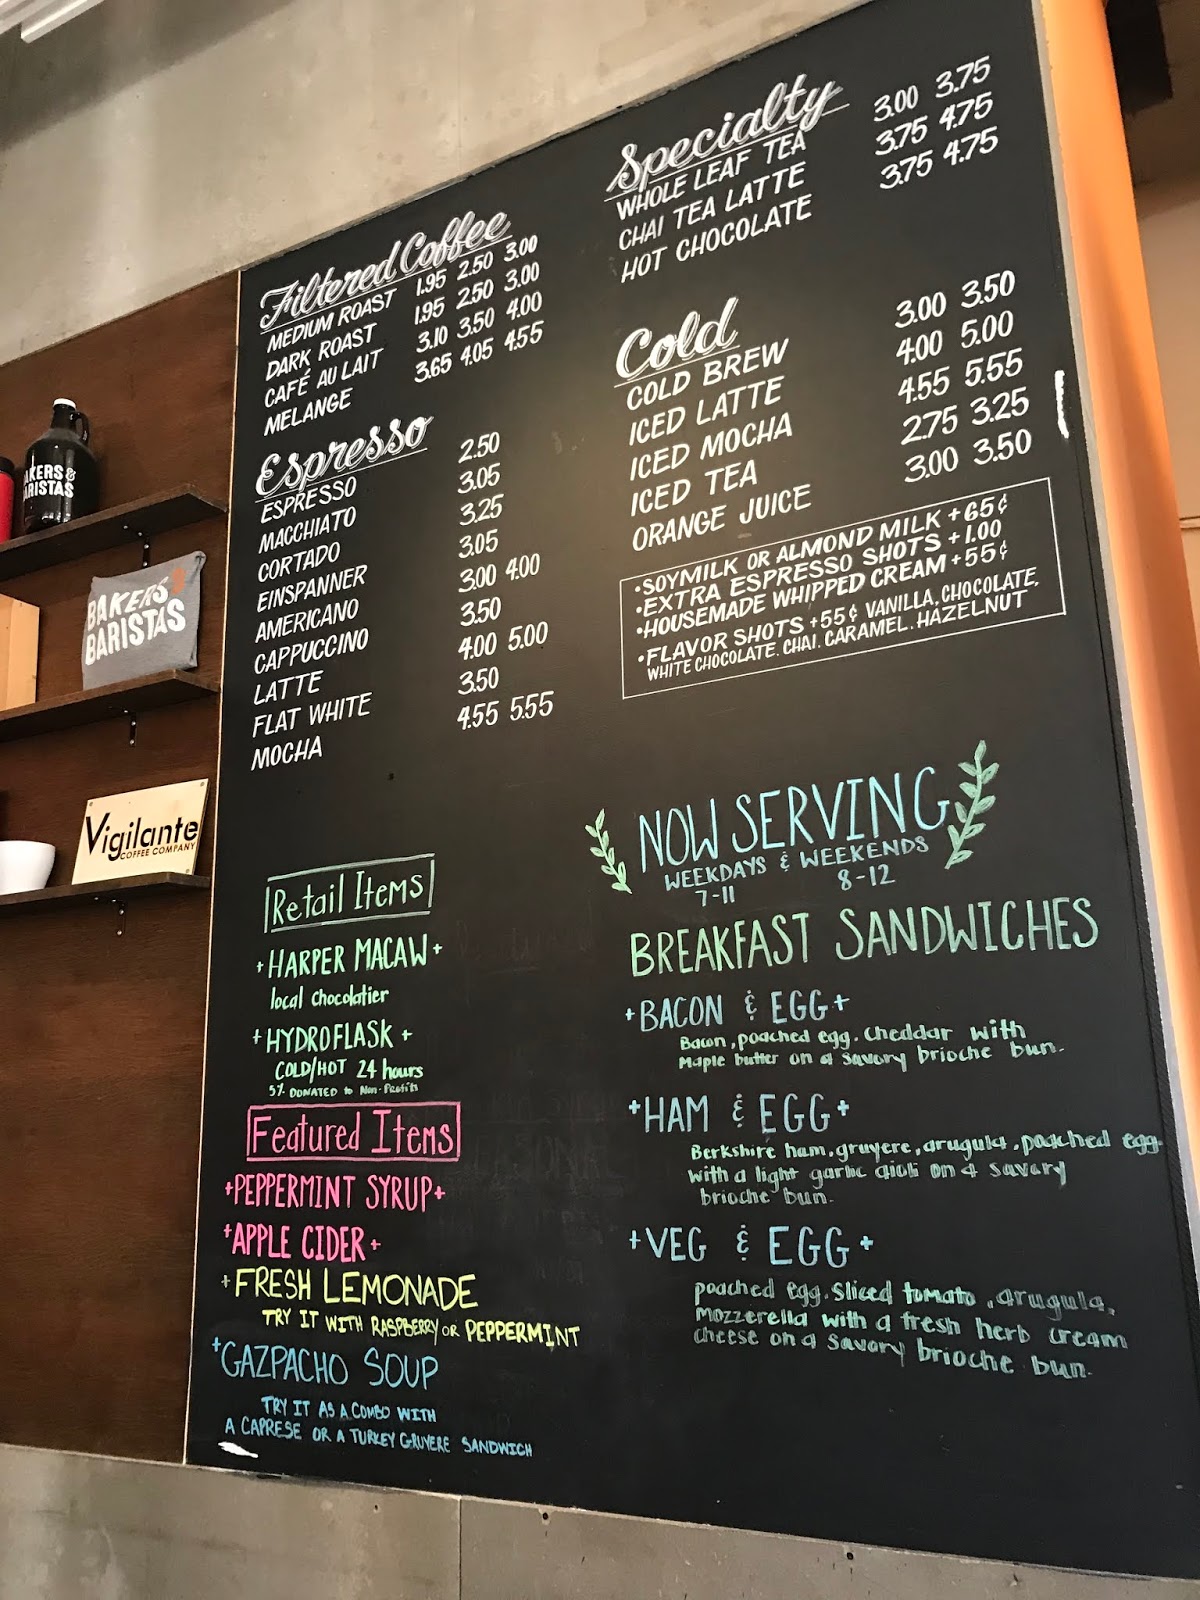 Filtered Coffee
MEDIUM ROAST 1.95 2.50 3.00
DARK ROAST 1.95 2.50 3.00
CAFÉ AU LAIT 3.10 3.50 4.00
MELANGE 3.65 4.05 4.55
Espresso
ESPRESSO 2.50
MACCHIATO 3.05
CORTADO 3.25
EINSPANNER 3.05
AMERICANO 3.00 4.00
CAPPUCCINO 3.50
LATTE 4.00 5.00
FLAT WHITE 3.50
MOCHA 4.55 5.55
Specialty
WHOLE LEAF TEA 3.00 3.75
CHAI TEA LATTE 3.75 4.75
HOT CHOCOLATE 3.75 4.75
Cold
COLD BREW 3.00 3.50
ICED LATTE 4.00 5.00
ICED MOCHA 4.55 5.55
ICED TEA 2.75 3.25
ORANGE JUICE 3.00 3.50
•SOYMILK OR ALMOND MILK +65¢
•EXTRA ESPRESSO SHOTS +1.00
•HOUSEMADE WHIPPED CREAM +55¢
•FLAVOR SHOTS +55¢ VANILLA, CHOCOLATE,
WHITE CHOCOLATE. CHAI. CARAMEL. HAZELNUT
Retail Items
+HARPER MACAW+
local chocolatier
+HYDROFLASK+
COLD/HOT 24 hours
5% DONATED to Non-Profits
Featured Items
+PEPPERMINT SYRUP+
+APPLE CIDER+
+FRESH LEMONADE
TRY IT WITH RASPBERRY OR PEPPERMINT
+GAZPACHO SOUP
TRY IT AS A COMBO WITH
A CAPRESE OR A TURKEY GRUYERE SANDWICH
NOW SERVING
WEEKDAYS & WEEKENDS
7-11 8-12
BREAKFAST SANDWICHES
+BACON & EGG+
Bacon, poached egg. cheddar with
Maple butter on a savory brioche bun.
+HAM & EGG+
Berkshire ham, gruyere, arugula, poached egg.
with a light garlic aioli on a savory
brioche bun.
+VEG & EGG+
poached egg. sliced tomato, arugula,
mozzerella with a fresh herb cream
cheese on a savory brioche bun.
AKERS &
ARISTAS
BAKERS
BARISTAS
Vigilante
COFFEE COMPANY